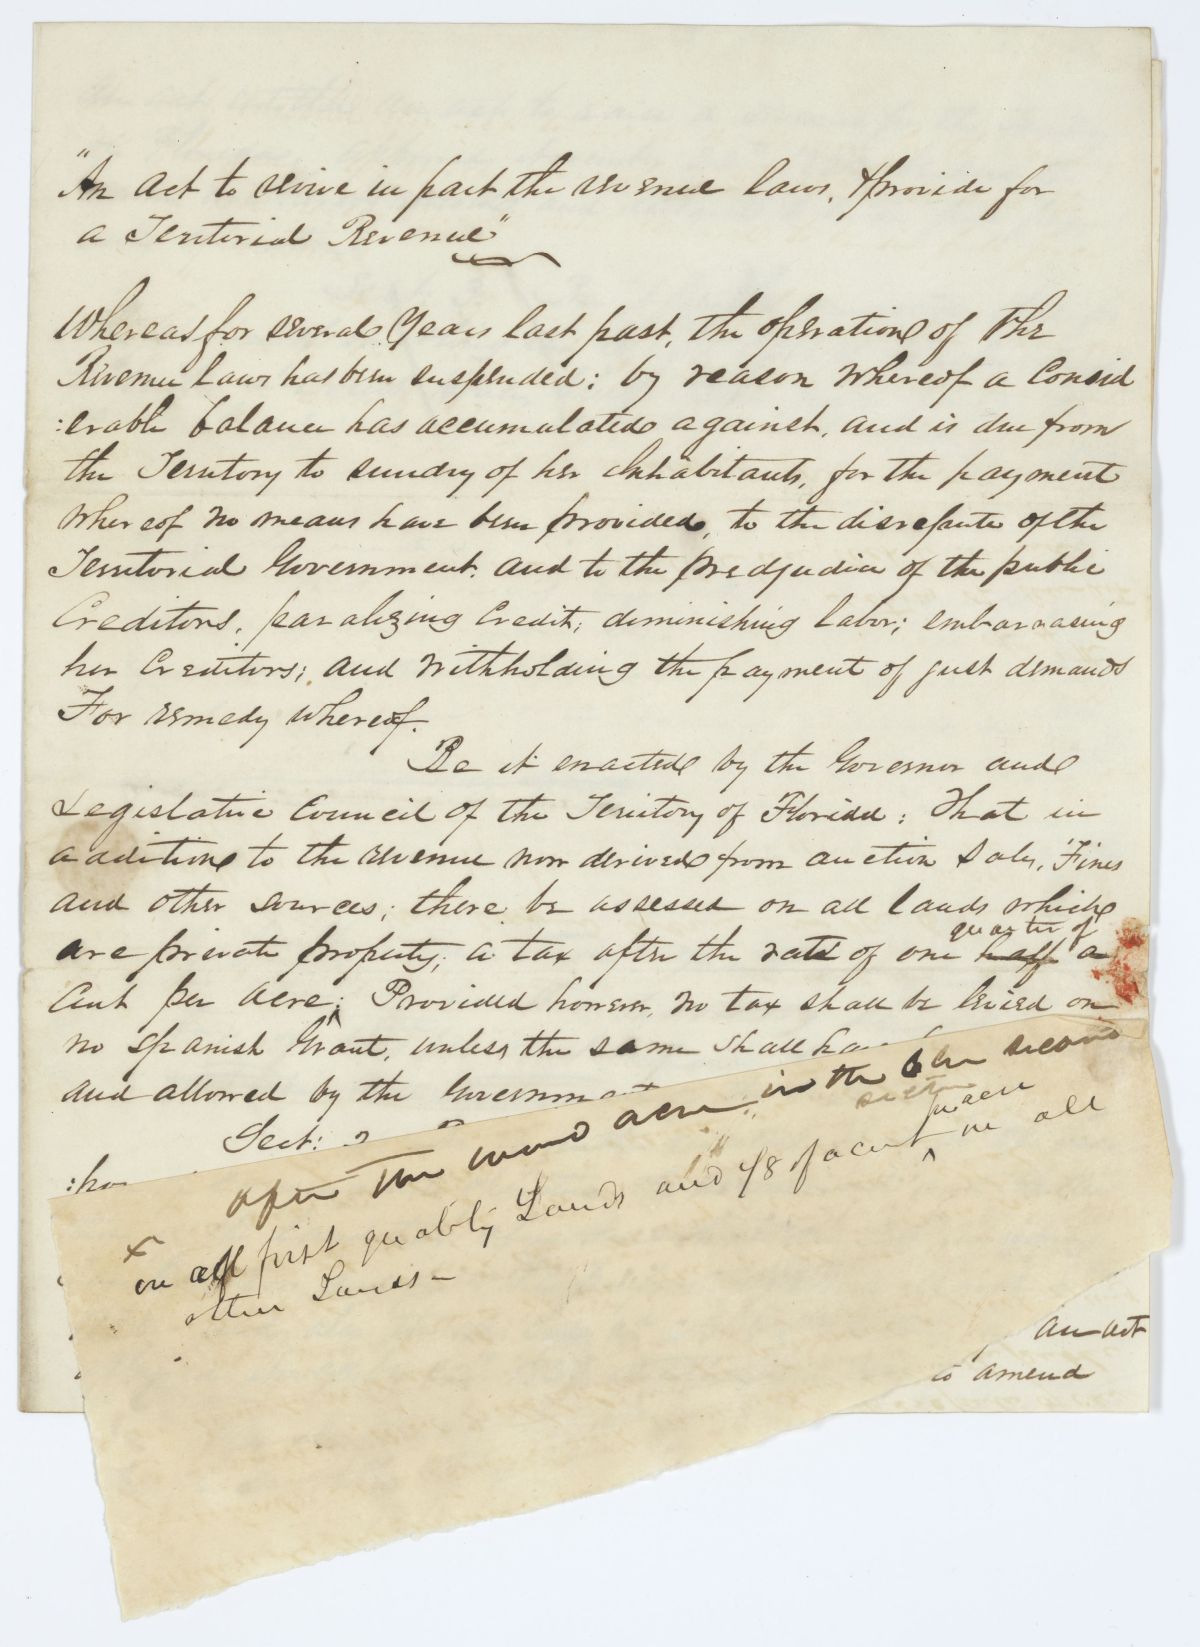 "An Act to revive in part the revenue laws, & provide for
a Territorial Revenue"
Whereas for several Years last past, the operation of the
Revenue laws has been suspended; by reason whereof a Consid
:erable balance has accumulated against, and is due from
the Territory to sundry of her Inhabitants, for the payment
whereof no means have been provided, to the disrepute of the
Territorial Government, and to the predjudice of the public
Creditors, paralizing Credit; diminishing labor; embarrasing
her Creditors; and withholding the payment of just demands
For remedy whereof.
Be it enacted by the Governor and
Legislative Council of the Territory of Florida: That in
addition to the revenue now derived from auction Sales, Fines
and other sources; there be assessed on all lands which
quarter of
are private property; a tax after the rate of one half a
Cent per acre; Provided however, no tax shall be levied on
no Spanish Grant, unless the same shall have
and allowed by the Government
Sect: 2
:ho
after the word acre in the second
pr acre
on all first quality Lands and 1/8 of a cent on all
other Lands
an act
to amend